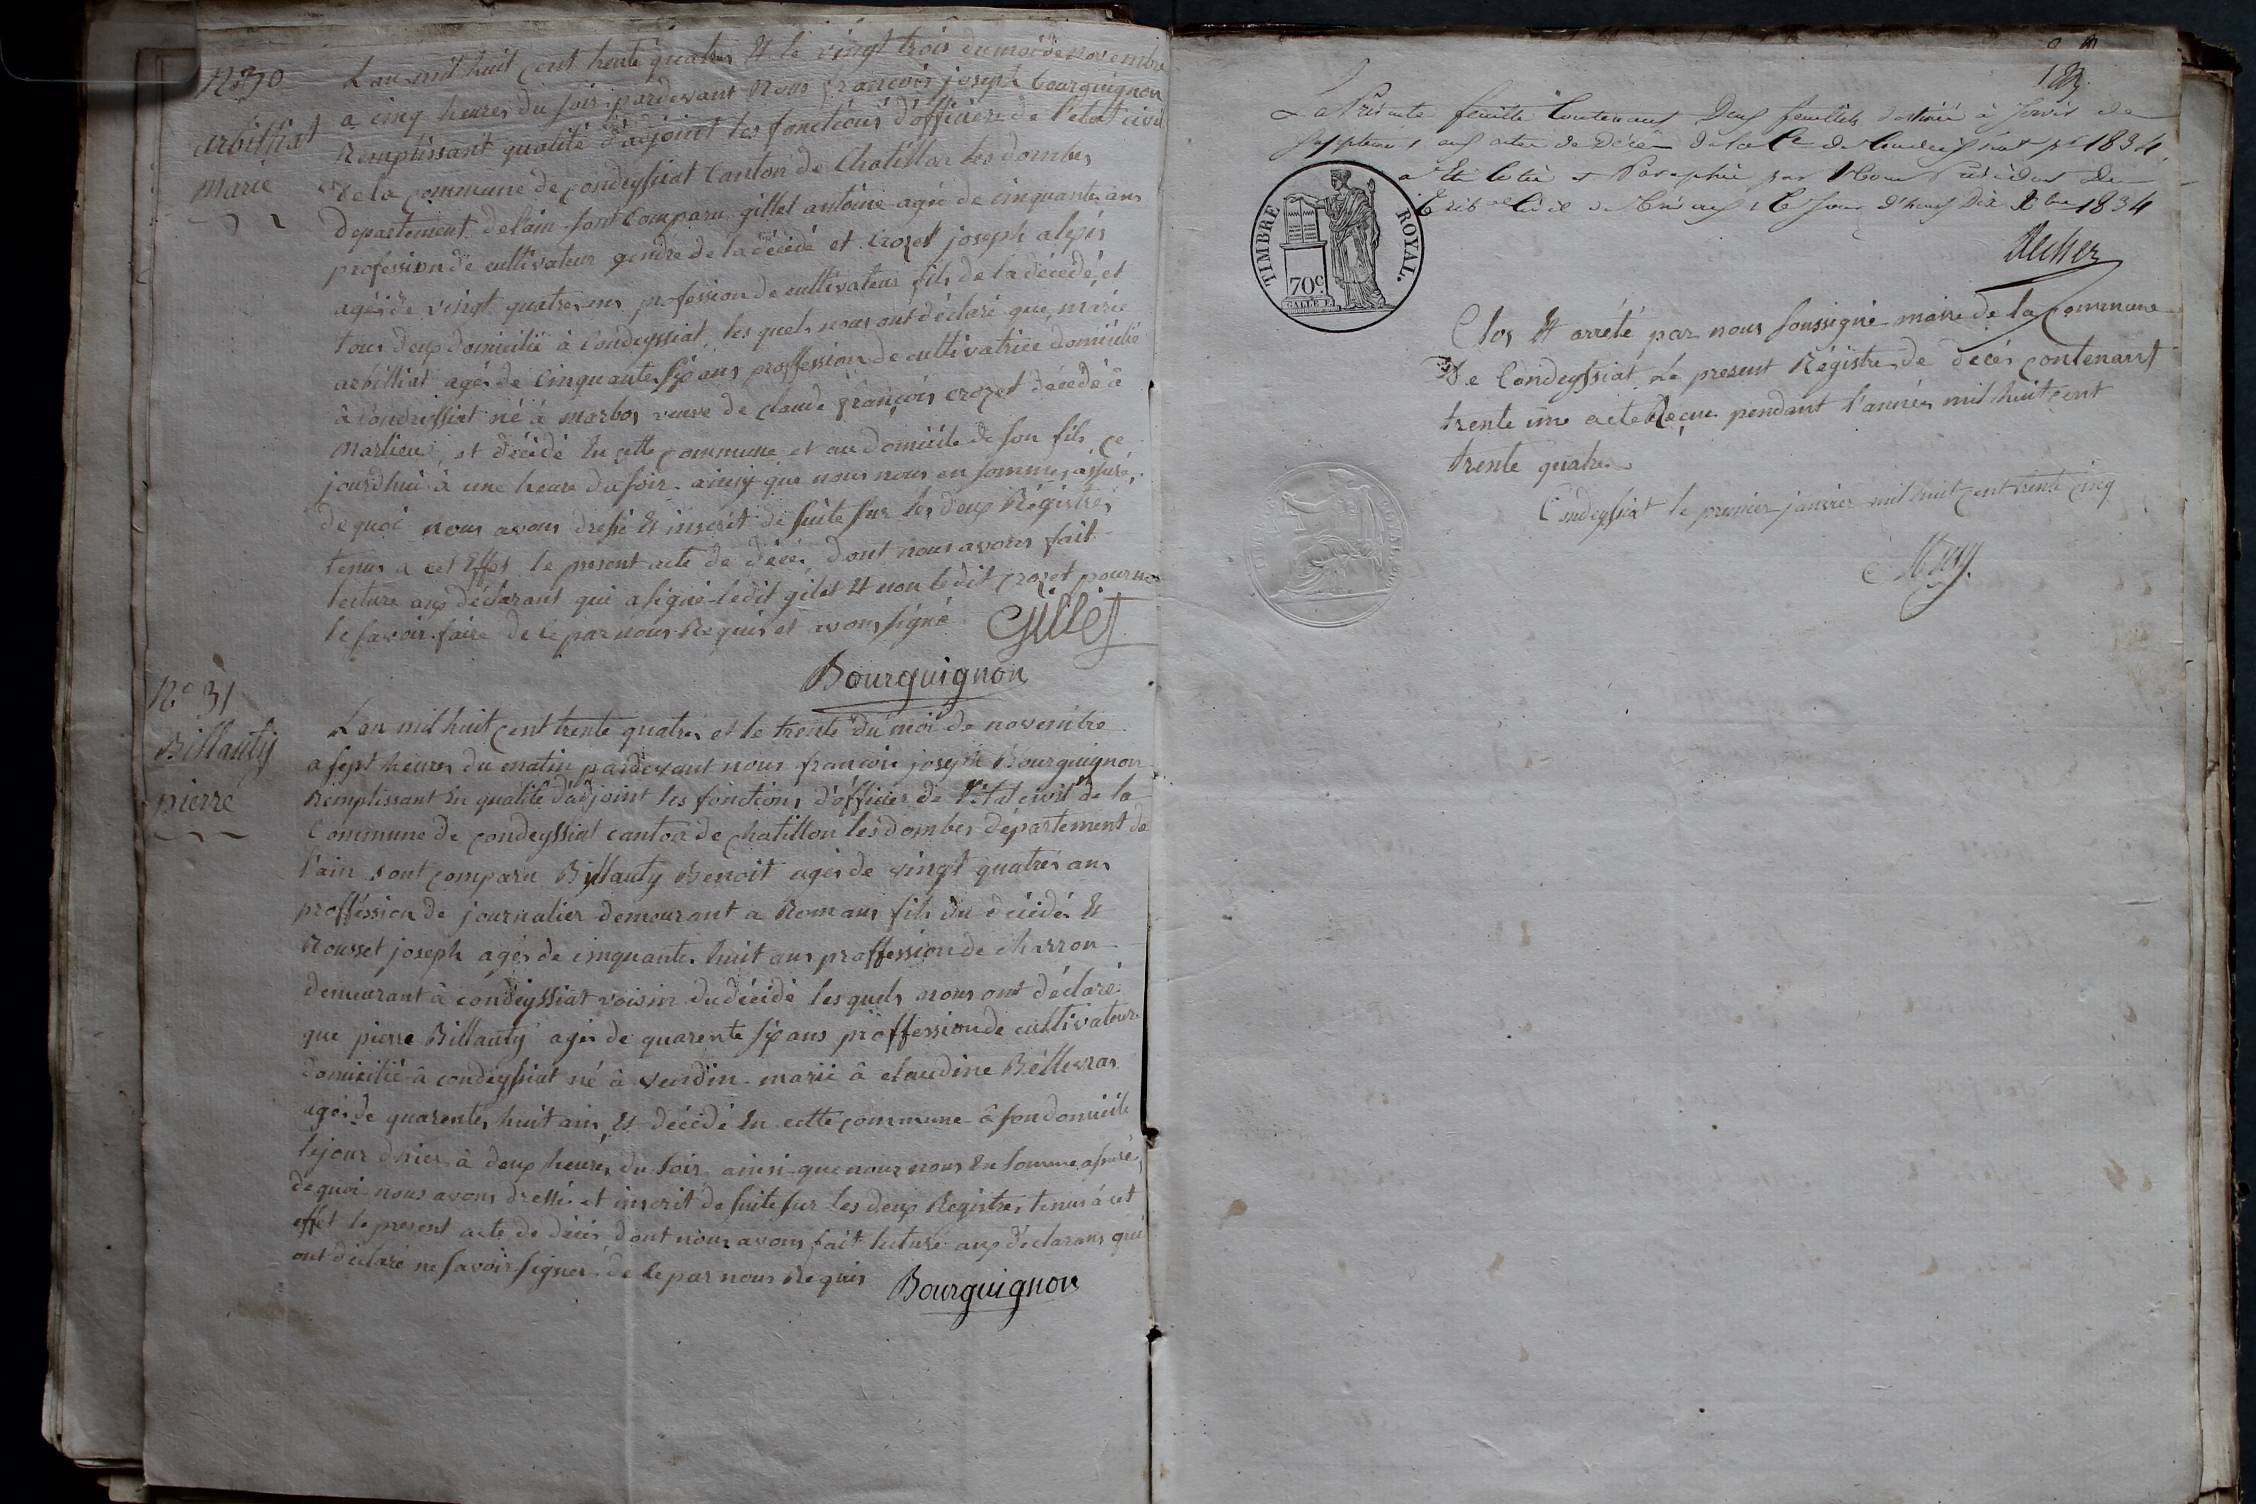 N° 30
arbilliat
marie
L'an mil huit cent trente quatres et le vingt trois du mois de novembre
a cinq heures du soir pardevant nous françois joseph bourguignon
Remplissant qualité d'adjoint les fonctions d'officiere de l'etat civil
de la commune de condeyssiat Canton de Chatillon les dombes
departement delain sont comparu gillet antoine agée de cinquantes ans
profession de cultivateur gendre de la décédé et Crozet joseph alexis
agés de vingt quatres ans profession de cultivateur fils de la décédé, et
tous deux domicilié à Condeyssiat, les quels nous ont déclaré que marie
arbilliat agés de Cinquantes six ans proffession de cultivatrice domicilié
à Condeissiat né à marbos veuve de claude françois crozet décédé à
Marlieux, et décédé En cette commune et au domicile de son fils ce
jourdhui à une heure du soir ainsy que nous nous en sommes assuré,
de quoi nous avons dressé et inscrit de suite sur les deux Régistres
tenus a cet Effet le present acte de décés dont nous avons fait
lecture aux déclarant qui a signé ledit gilet et non ledit crozet pour ne
le savoir faire de le par nous Requis et avons signé
Gillet
Bourguignon
N° 31
Billauty
pierre
L'an mil huit cent trente quatres et le trente du moi de novembre
a sept heures du matin pardevant nous françois joseph Bourguignon
Remplissant En qualité d'adjoint les fonctions d'officier de l'état civil de la
Commune de condeyssiat canton de chatillon les dombes département de
l'ain sont comparu Billauty Benoit agés de vingt quatres ans
proffession de journalier demourant a Romans fils du décédés et
Rousset joseph agés de cinquantes huit ans proffession de charron
demeurant à condeyssiat voisin du décédé lesquels nous ont déclaré
que pierre Billauty agés de quarente six ans proffession de cultivateur
domicilié à condeyssiat né à vendin marié à claudine Béllevras
agés de quarentes huit ans, et décédé En cette commune à son domicile
lejour d'hier à deux heures du soir, ainsi que nous nous En sommes assuré,
de quoi nous avons dressé et inscrit de suite sur les deux Registres tenus à cet
effet le present acte de décés dont nous avons fait lecture aux déclarans qui
ont déclaré ne savoir signer de le par nous Requis
Bourguignon
La Présente feuille Contenant Deux feuillets destinée à servir de
supplément aux actes de Décès de la Cne de Condeissiat pr 1834,
a été Cotée et Paraphée par Nous Président du
Trib al Civil de ce jour d'huy Dix Xbre 1834
TIMBRE ROYAL.
70c.
GALLE F.
Clos et arrété par nous soussigné maire de la Commune
De Condeyssiat Le present Régistres de décés contenant
trente une acte Reçus pendant l'années mil huit cent
trente quatres
Condeyssiat le premier janvier mil huit cent trente cinq